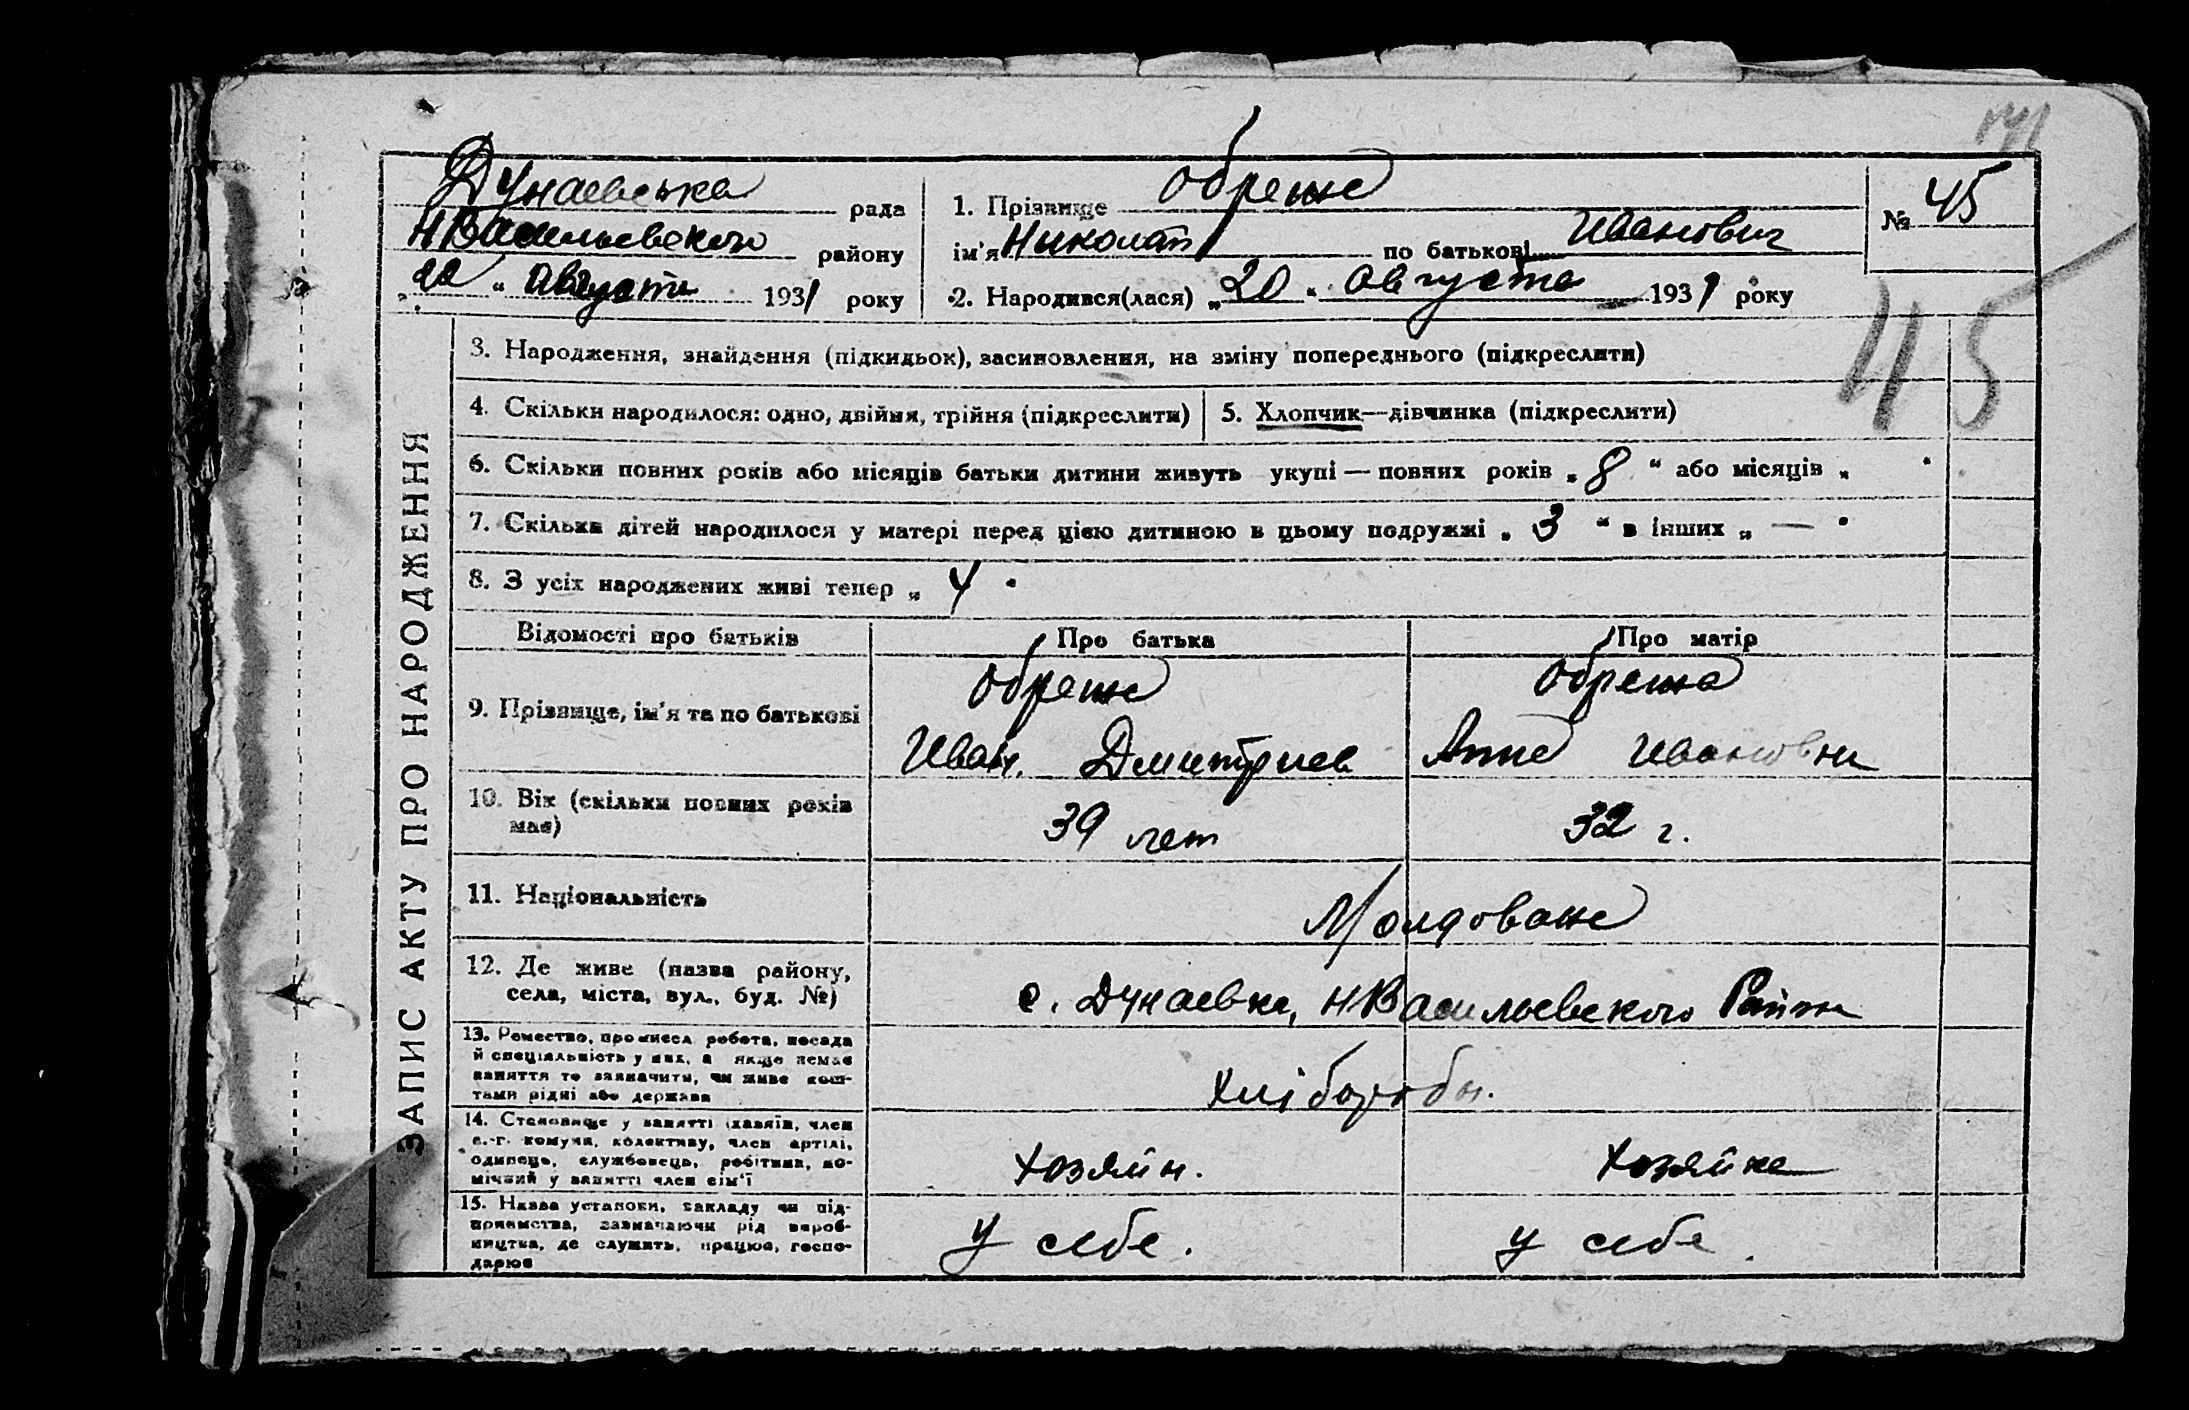 Дунаевська рада
НВасильевского району
"22" Августа 1931 року
1. Прізвище Обреже
ім'я Николай по батькові Иванович
№ 45
2. Народився(лася) "20" августа 1931 року
45
ЗАПИС АКТУ ПРО НАРОДЖЕННЯ
3. Народження, знайдення (підкидьок), засиновлення, на зміну попереднього (підкреслити)
4. Скільки народилося: одно, двійня, трійня (підкреслити)
5. Хлопчик—дівчинка (підкреслити)
6. Скільки повних років або місяців батьки дитини живуть укупі — повних років „ 8 “ або місяців „ “
7. Скільки дітей народилося у матері перед цією дитиною в цьому подружжі „ 3 “ в інших „ — “
8. З усіх народжених живі тепер „ 4 “
Відомості про батьків Про батька Про матір
9. Прізвище, ім'я та по батькові
Обреже
Иван. Дмитриев
Обрежа
Анна Ивановна
10. Вік (скільки повних років
має)
39 лет
32 г.
11. Національність
Молдоване
12. Де живе (назва району,
села, міста, вул., буд. №)
с. Дунаевка, НВасильевского Района
13. Ремество, промисел робота, посада
й спеціяльність у них, а якще немає
заняття то зазначити, чи живе кош-
тами рідні або держави
Хліборобы.
14. Становище у занятті (хазяїн, член
с.-г. комуни, колективу, член артілі,
одинець, службовець, робітник, по-
мічний у занятті член сім'ї
Хозяйн.
Хозяйка
15. Назва установи, закладу чи під-
приємства, зазначаючи рід вироб-
ництва, де служить, працює, госпо-
дарює
У себе.
У себе.